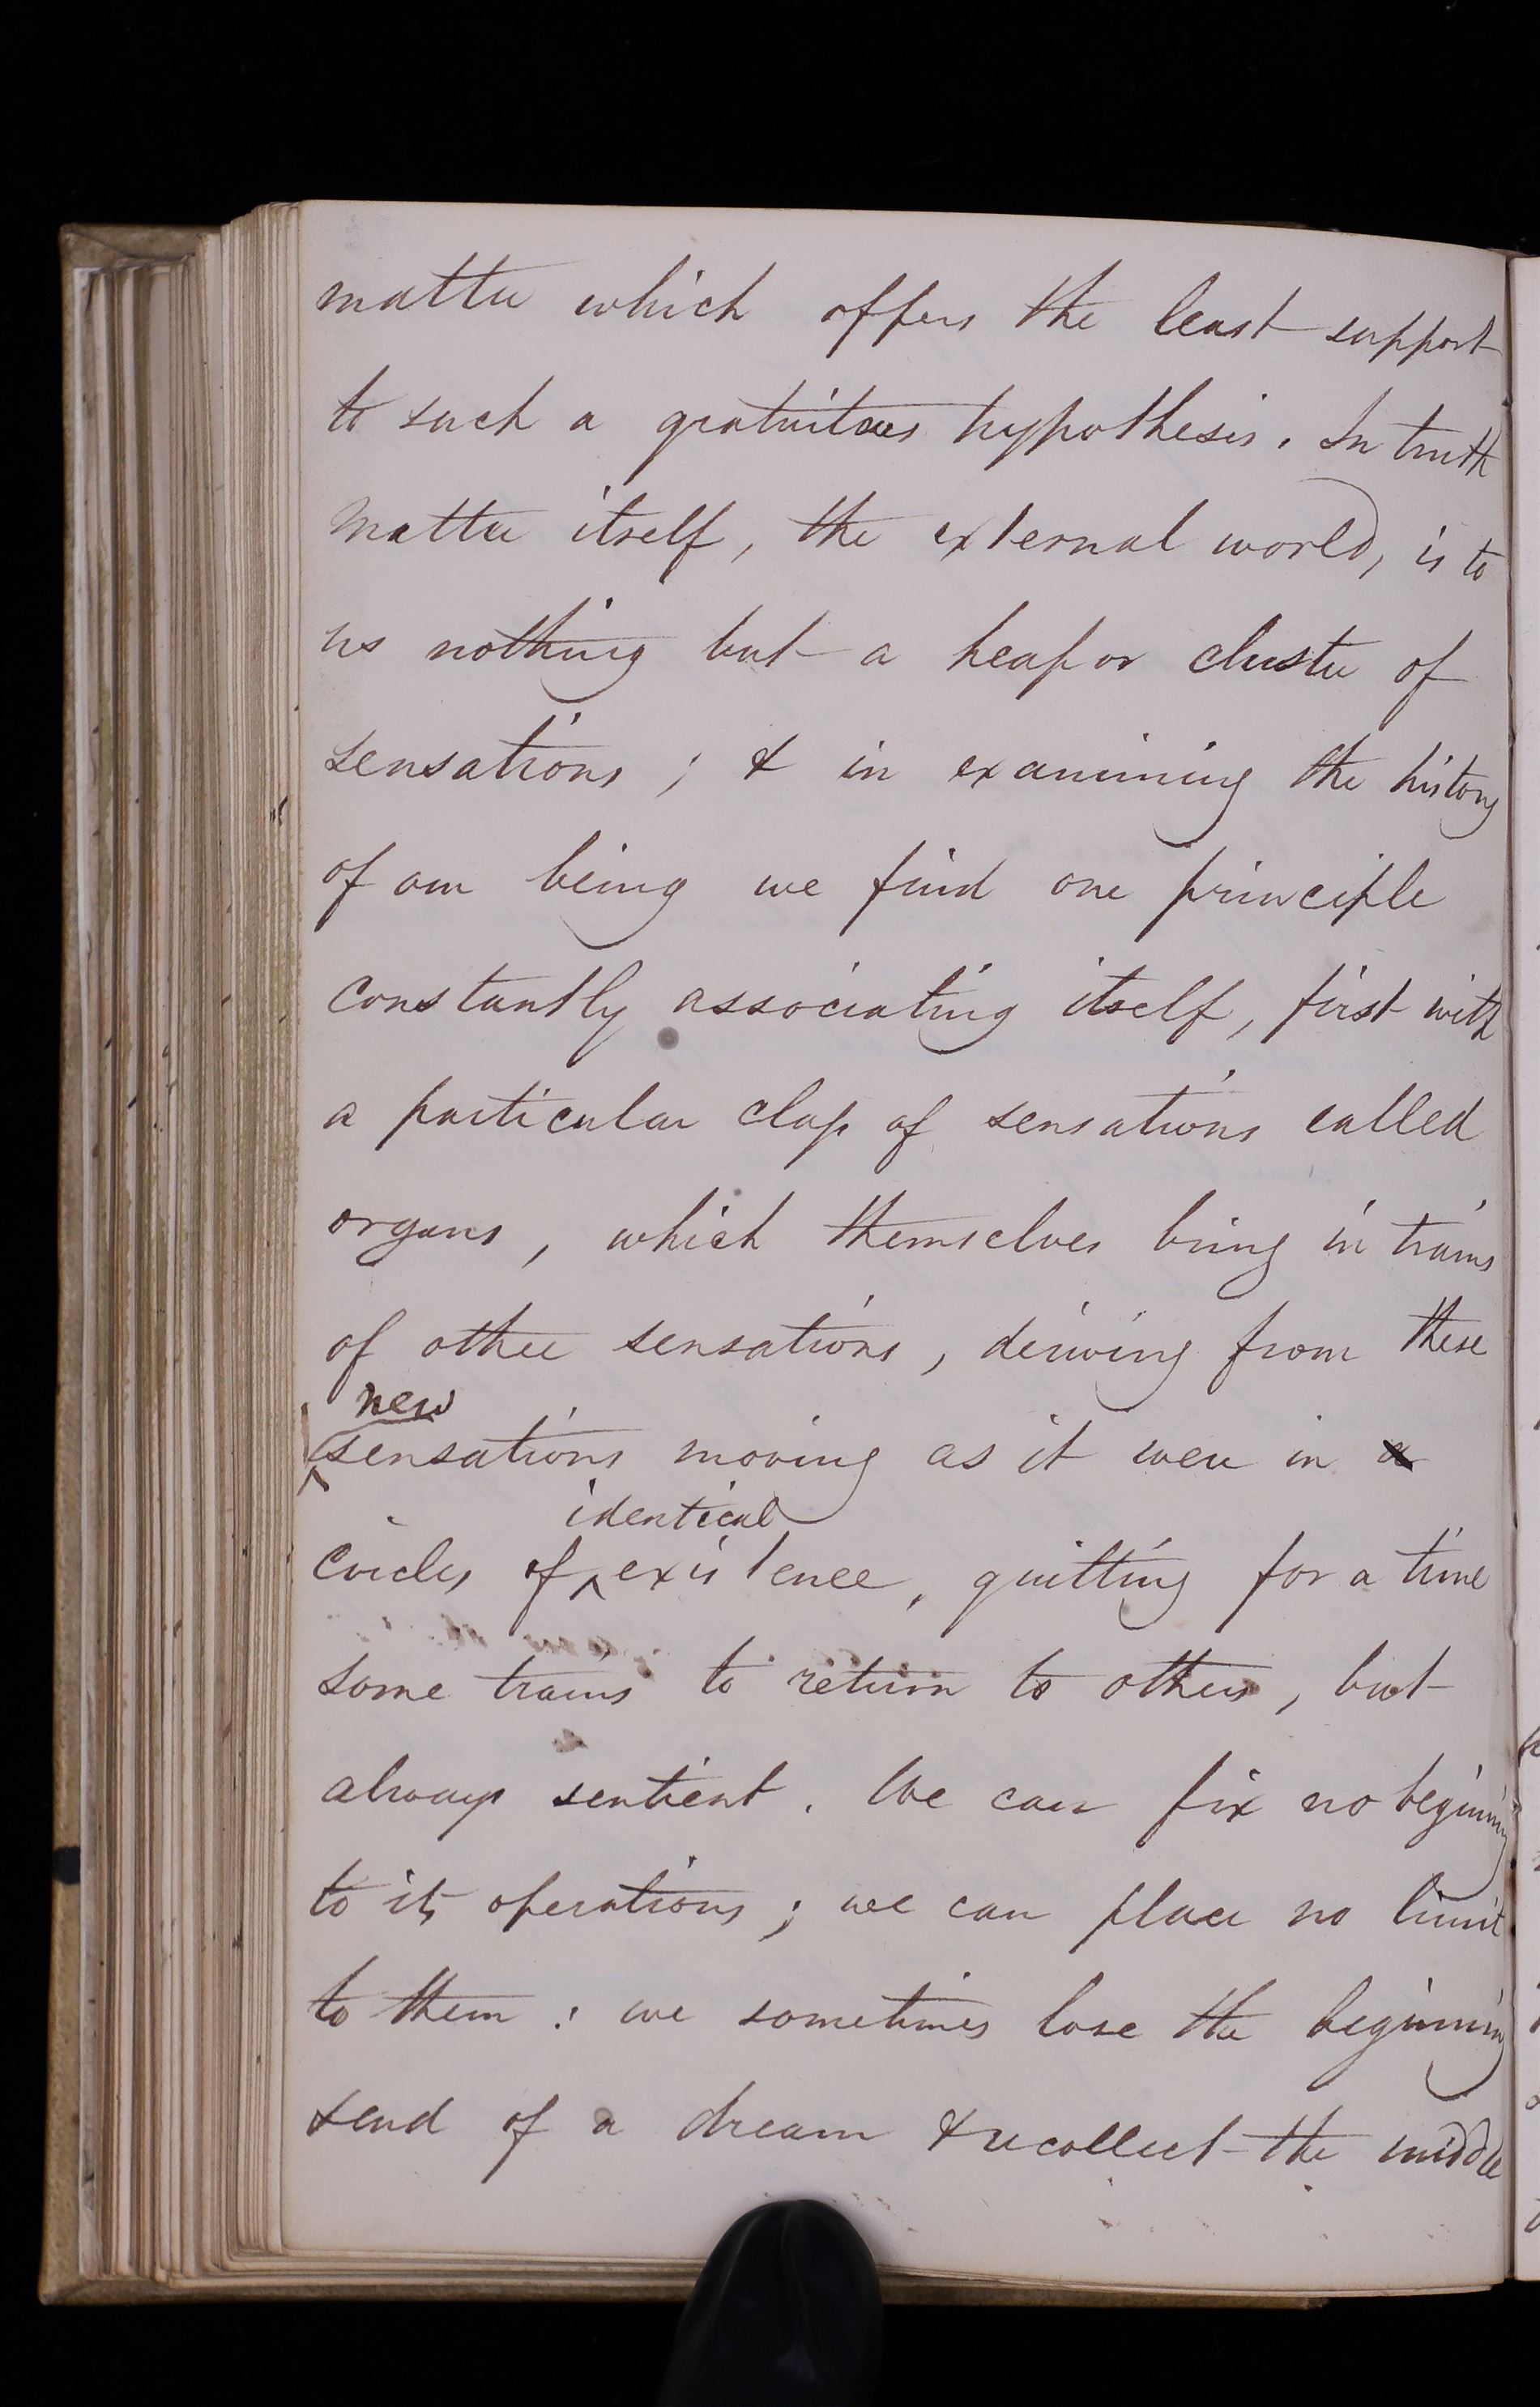 matter which offers the least support
to such a gratuitous hypothesis. In truth
matter itself, the external world, is to
us nothing but a heap or cluster of
sensations; & in examining the history
of our being we find one principle
constantly associating itself, first with
a particular class of sensations called
organs, which themselves bring in trains
of other sensations, deriving from these
new
sensations moving as it were in a
identical
circles of existence, quitting for a time
some trains to return to others, but
always sentient. We can fix no begining
to its operations; we can place no limit
to them: we sometimes lose the beginning
& end of a dream & recollect the middle